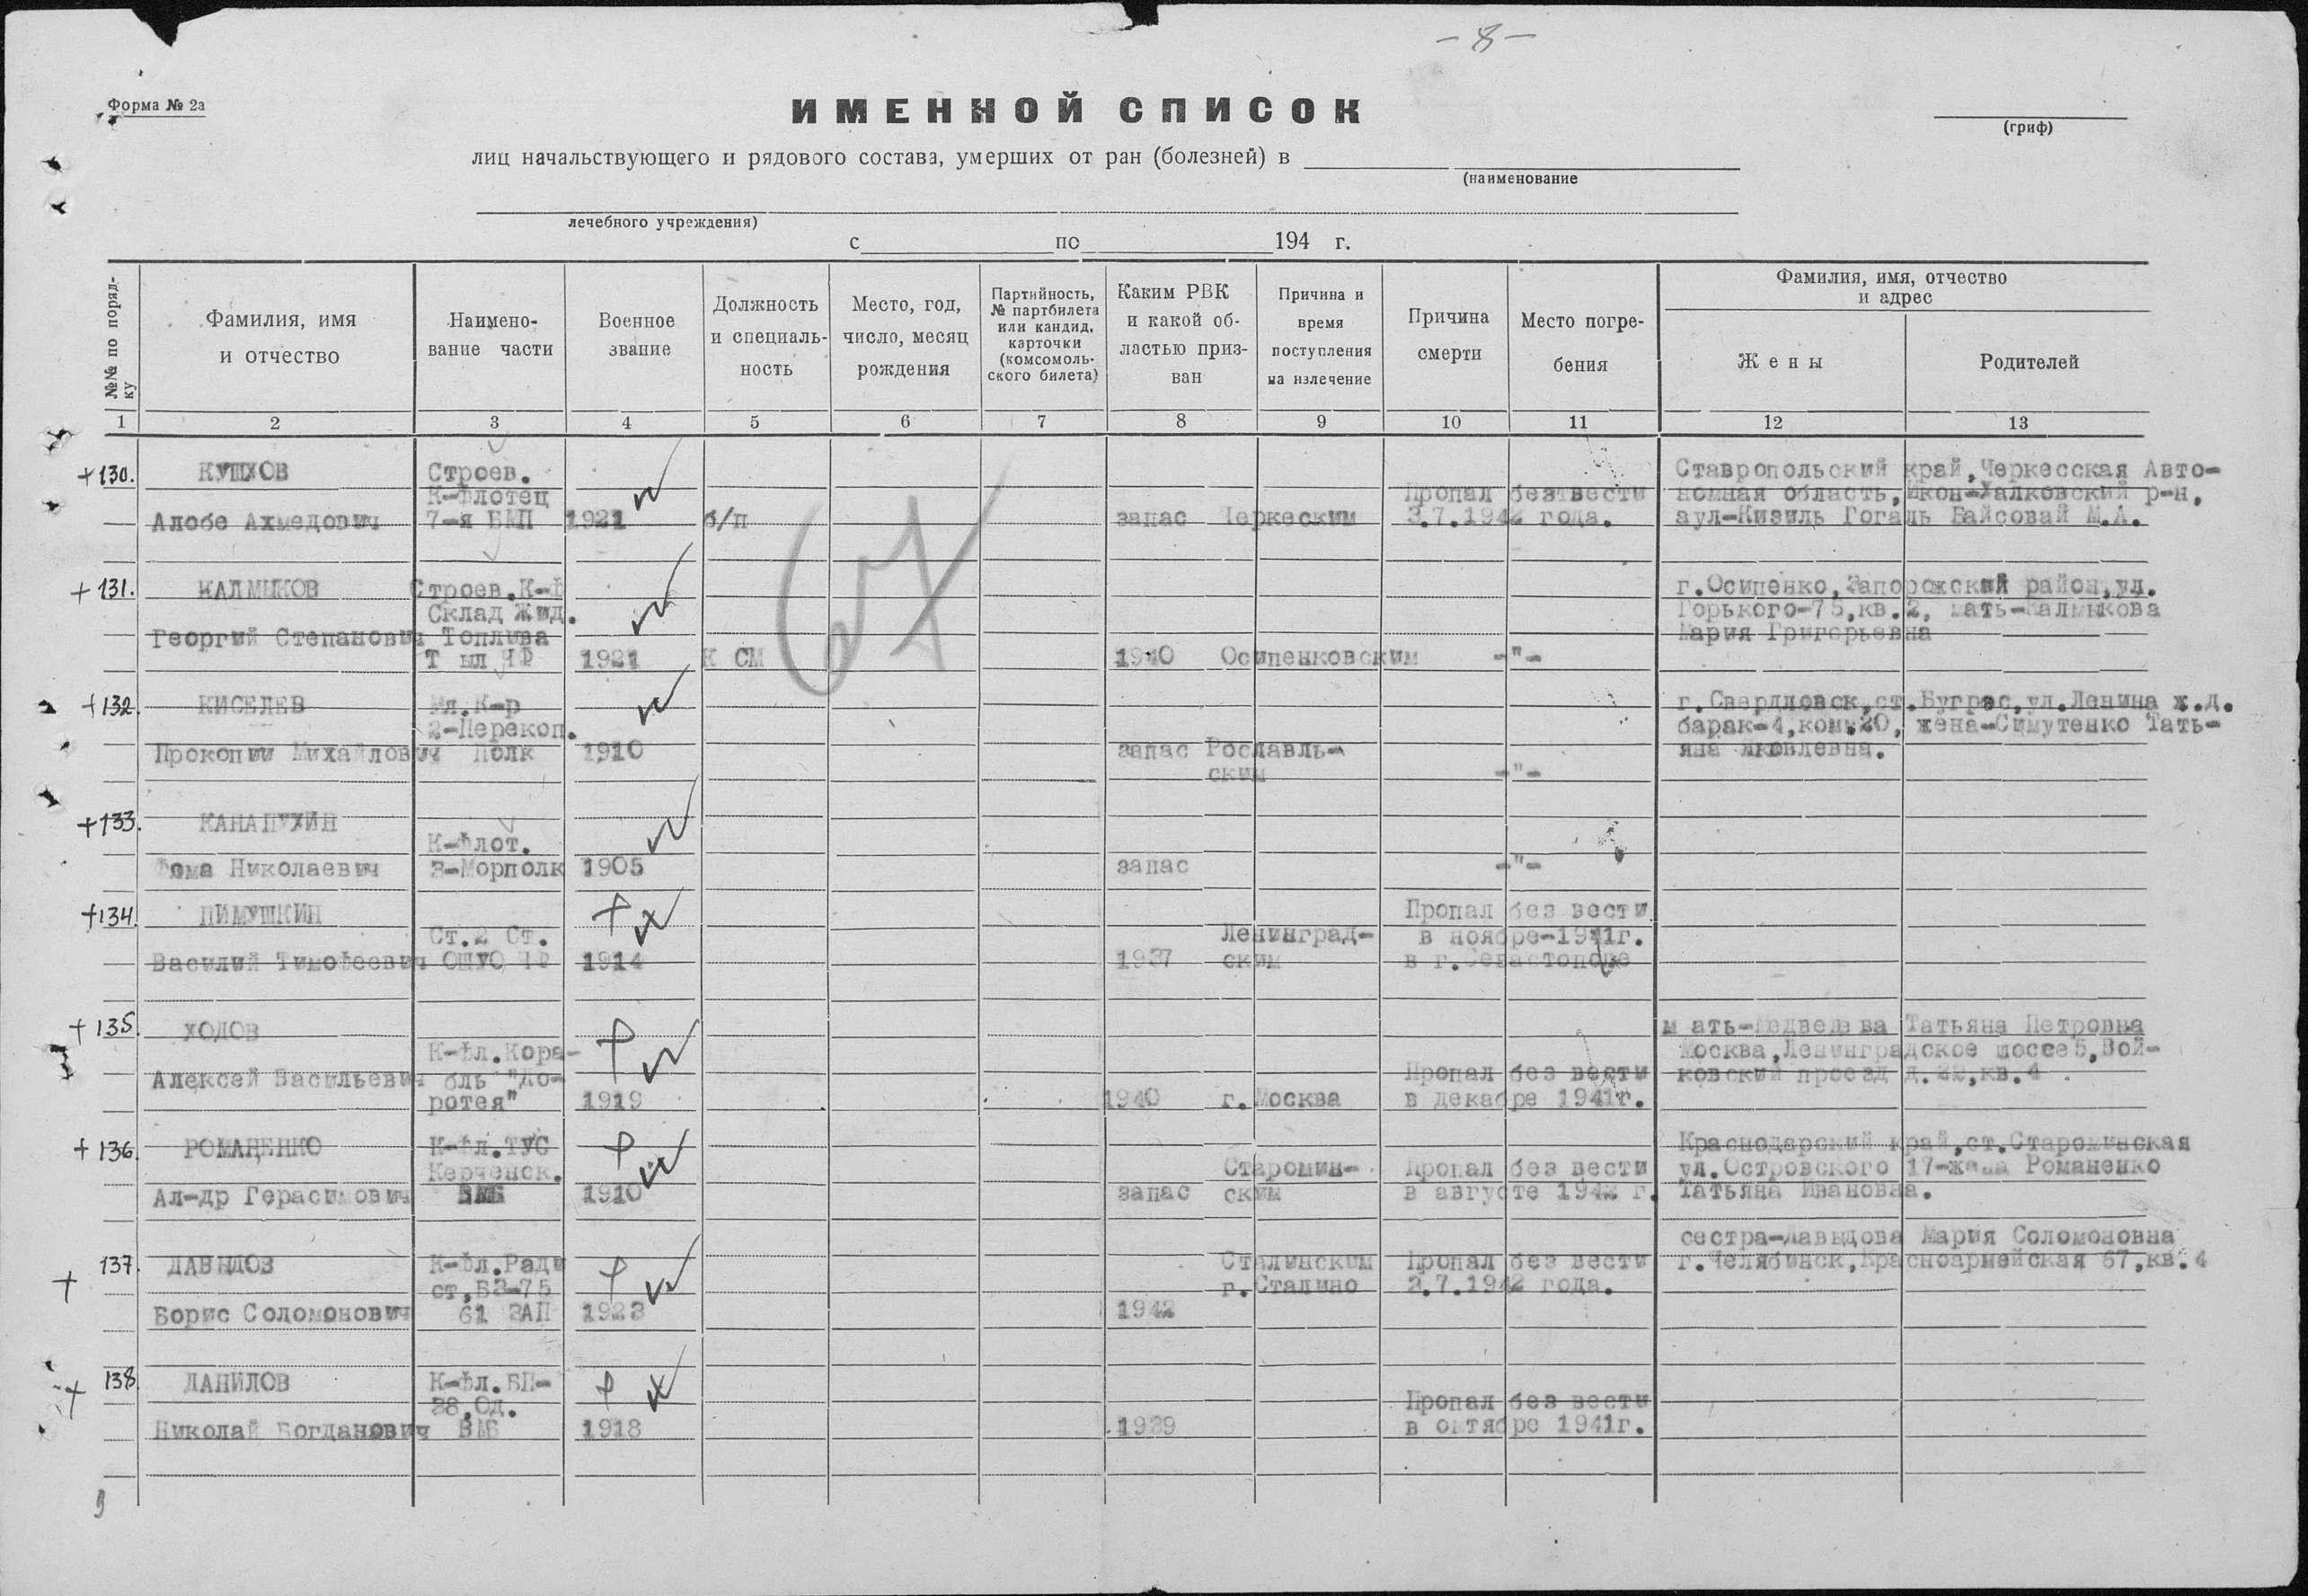 - 8 -
Форма № 2а
ИМЕННОЙ СПИСОК
(гриф)
лиц начальствующего и рядового состава, умерших от ран (болезней) в
(наименование
лечебного учреждения)
с по 194 г.
№№ по поряд-
ку
Фамилия, имя
и отчество
Наимено-
вание части
Военное
звание
Должность
и специаль-
ность
Место, год,
число, месяц
рождения
Партийность,
№ партбилета
или кандид.
карточки
(комсомоль-
ского билета)
Каким РВК
и какой об-
ластью приз-
ван
Причина и
время
поступления
на излечение
Причина
смерти
Место погре-
бения
Фамилия, имя, отчество
и адрес
Жены
Родителей
1 2 3 4 5 6 7 8 9 10 11 12 13
+130. КУШХОВ Строев. Ставропольский край,Черкесская Авто-
К-Флотец Пропал безтвести номная область, р-н,
Алобе Ахмедович 7-я БМП 1921 б/п запас Черкеским 3.7.1942 года. аул-Кизиль Гогаль Байсовай М.А.
+131. КАЛМЫКОВ Строев.К-Ф г.Осипенко,Запорожский район,ул.
Склад Жид. Горького-75,кв.2, мать-Калмыкова
Георгий Степанович Топлива Мария Григорьевна
Т ыл ЧФ 1921 К СМ 1940 Осипенковским -"-
+132. КИСЕЛЕВ Мл.К-р г.Свердловск,ст.Буграс,ул.Ленина ж.д.
2-Перекоп. барак-4,ком.20, жена-Симутенко Тать-
Прокопии Михайлович Полк 1910 запас Рославль- яна Яковлевна.
ским -"-
+133. КАНАПУХИН
К-Флот.
Фома Николаевич 3-Морполк 1905 запас -"-
+134. ПИМУШКИН Пропал без вести
Ст.2 Ст. Ленинград- в ноябре-1941г.
Василий Тимофеевич ОШУО ЧФ 1914 1937 ским в г.Севастополе
+135. ХОДОВ м ать-Медведева Татьяна Петровна
К-Фл.Кора- Москва,Ленинградское шоссе5,Вой-
Алексей Васильевич бль "До- Пропал без вести ковский проезд д.22,кв.4
ротея" 1919 1940 г.Москва в декабре 1941г.
+136. РОМАНЕНКО К-Фл.ТУС Краснодарский край,ст.Староминская
Керченск. Старомин- Пропал без вести ул.Островского 17-жена Романенко
Ал-др Герасимович ВМБ 1910 запас ским в августе 1942 г. Татьяна Ивановна.
сестра-Давыдова Мария Соломоновна
+ 137. ДАВЫДОВ К-Фл.Ради Сталинским Пропал без вести г.Челябинск,Красноармейская 67,кв.4
ст,БЗ-75 г.Сталино 3.7.1942 года.
Борис Соломонович 61 ЗАП 1923 1942
+ 138. ДАНИЛОВ К-Фл.БП-
38,Од. Пропал без вести
Николай Богданович ВМБ 1918 1939 в октябре 1941г.
9